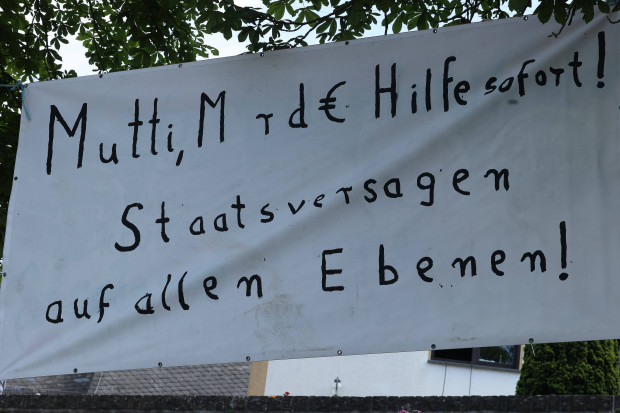 Mutti, M rd€ Hilfe sofort!
Staatsversagen
auf allen Ebenen!